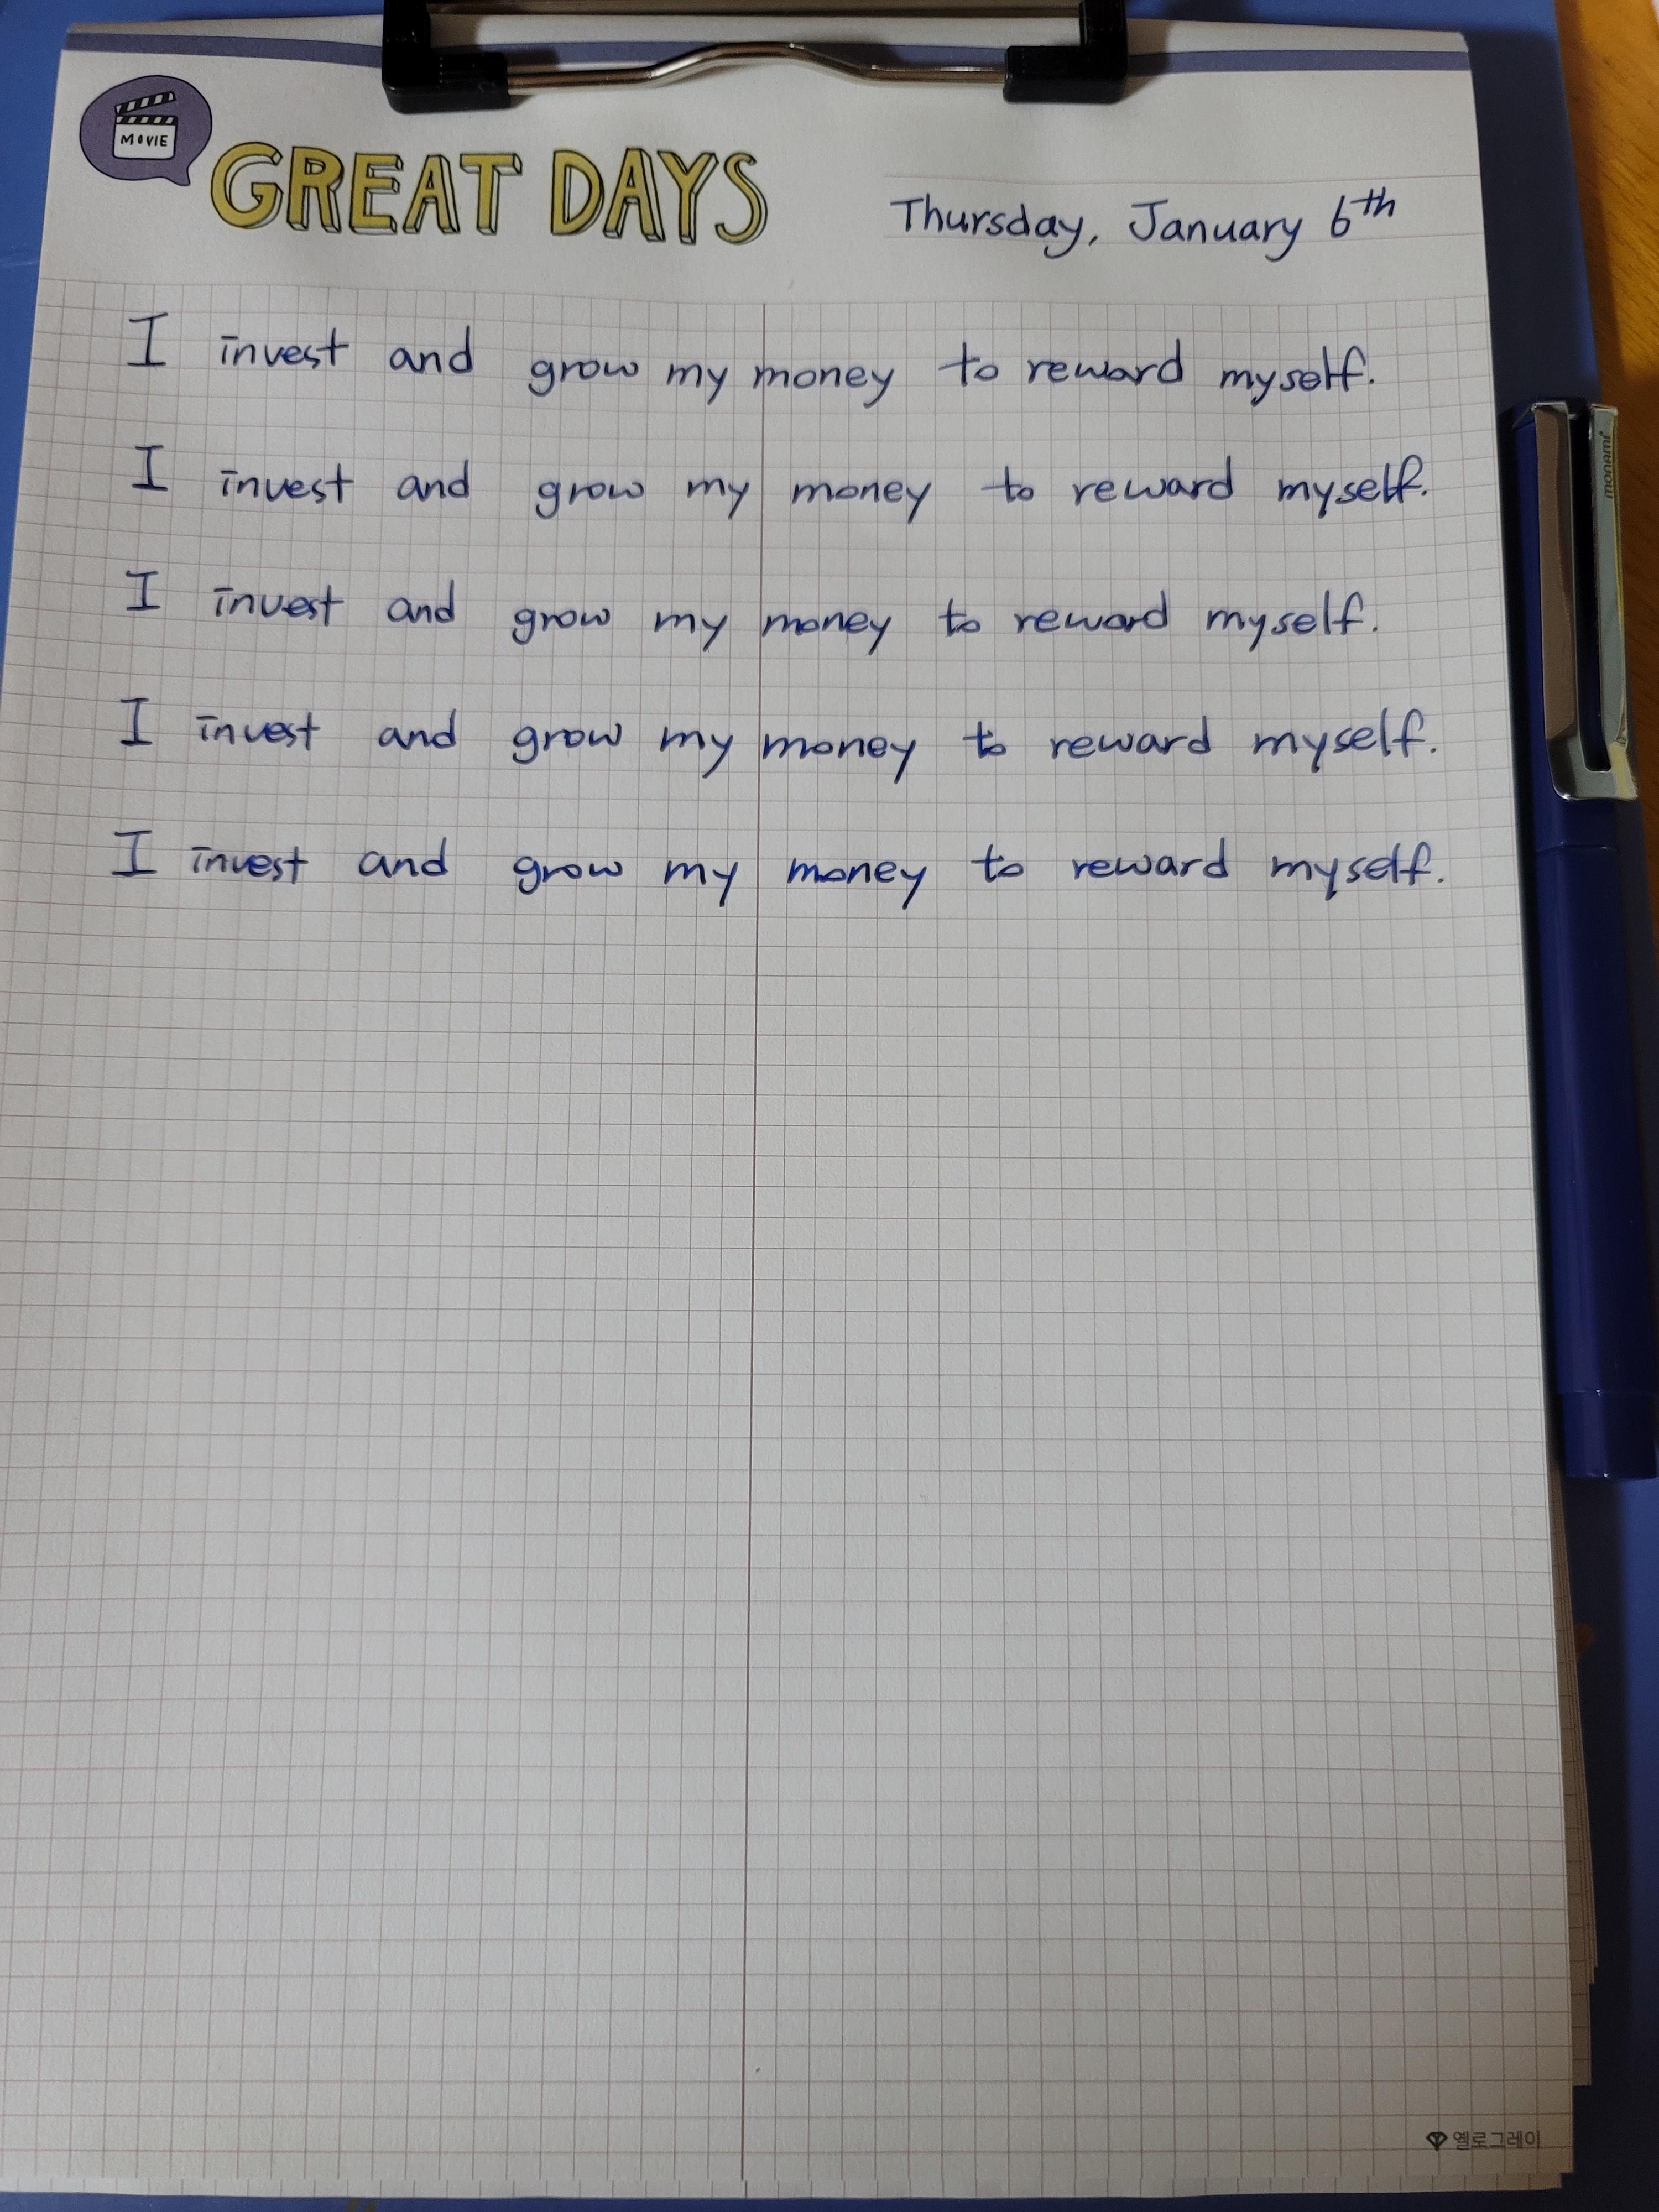 MOVIE
GREAT DAYS
Thursday, January 6th
I invest and grow my money to reward myself.
I invest and grow my money to reward myself.
I invest and grow my money to reward myself.
I invest and grow my money to reward myself.
I invest and grow my money to reward myself.
monami
옐로그레이